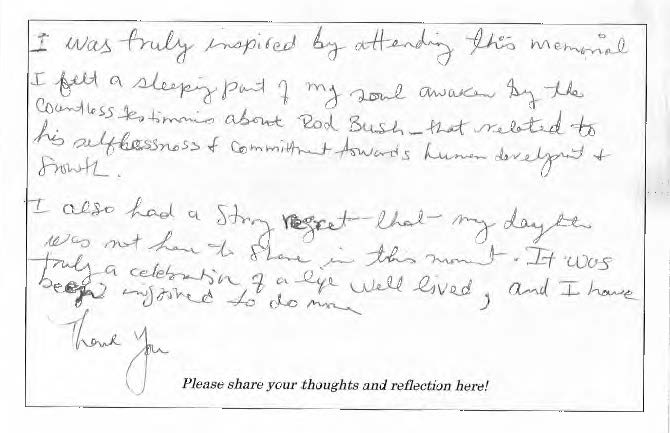 I was truly inspired by attending this memorial
I felt a sleeping part of my soul awaken by the
countless testimonies about Rod Bush - that related to
his selflessness & committment towards human development &
Growth.
I also had a strong regret that my daughter
was not here to share in this moment. It was
truly a celebration of a life well lived, and I have
been inspired to do more
Thank You
Please share your thoughts and reflection here!